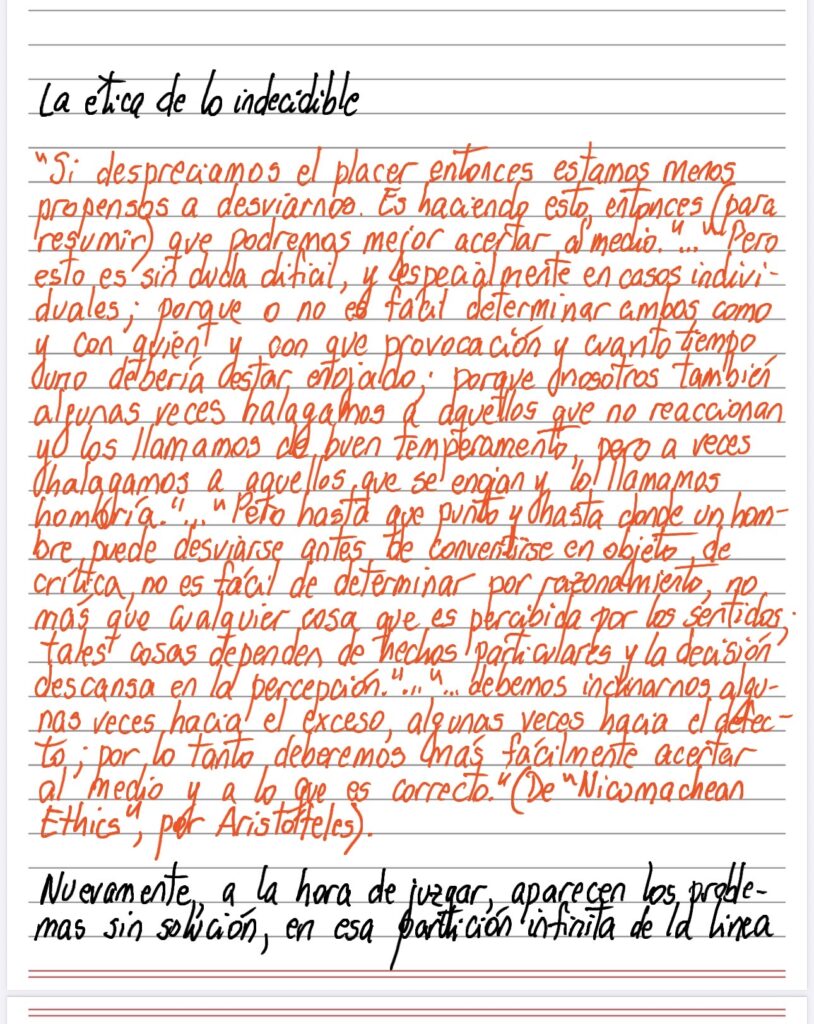 La ética de lo indecidible
"Si despreciamos el placer entonces estamos menos
propensos a desviarnos. Es haciendo esto, entonces (para
resumir) que podremos mejor acertar al medio."..."Pero
esto es sin duda difícil, y especialmente en casos indivi-
duales; porque o no es fácil determinar ambos como
y con quien y con que provocación y cuanto tiempo
uno debería estar enojado; porque nosotros también
algunas veces halagamos a aquellos que no reaccionan
y los llamamos de buen temperamento, pero a veces
halagamos a aquellos que se enojan y lo llamamos
hombría."..."Pero hasta que punto y hasta donde un hom-
bre puede desviarse antes de convertirse en objeto de
crítica, no es fácil de determinar por razonamiento, no
más que cualquier cosa que es percibida por los sentidos;
tales cosas dependen de hechos particulares y la decisión
descansa en la percepción."..."... debemos inclinarnos algu-
nas veces hacia el exceso, algunas veces hacia el defec-
to; por lo tanto deberemos más fácilmente acertar
al medio y a lo que es correcto." (De "Nicomachean
Ethics", por Aristótteles).
Nuevamente, a la hora de juzgar, aparecen los proble-
mas sin solución, en esa partición infinita de la línea